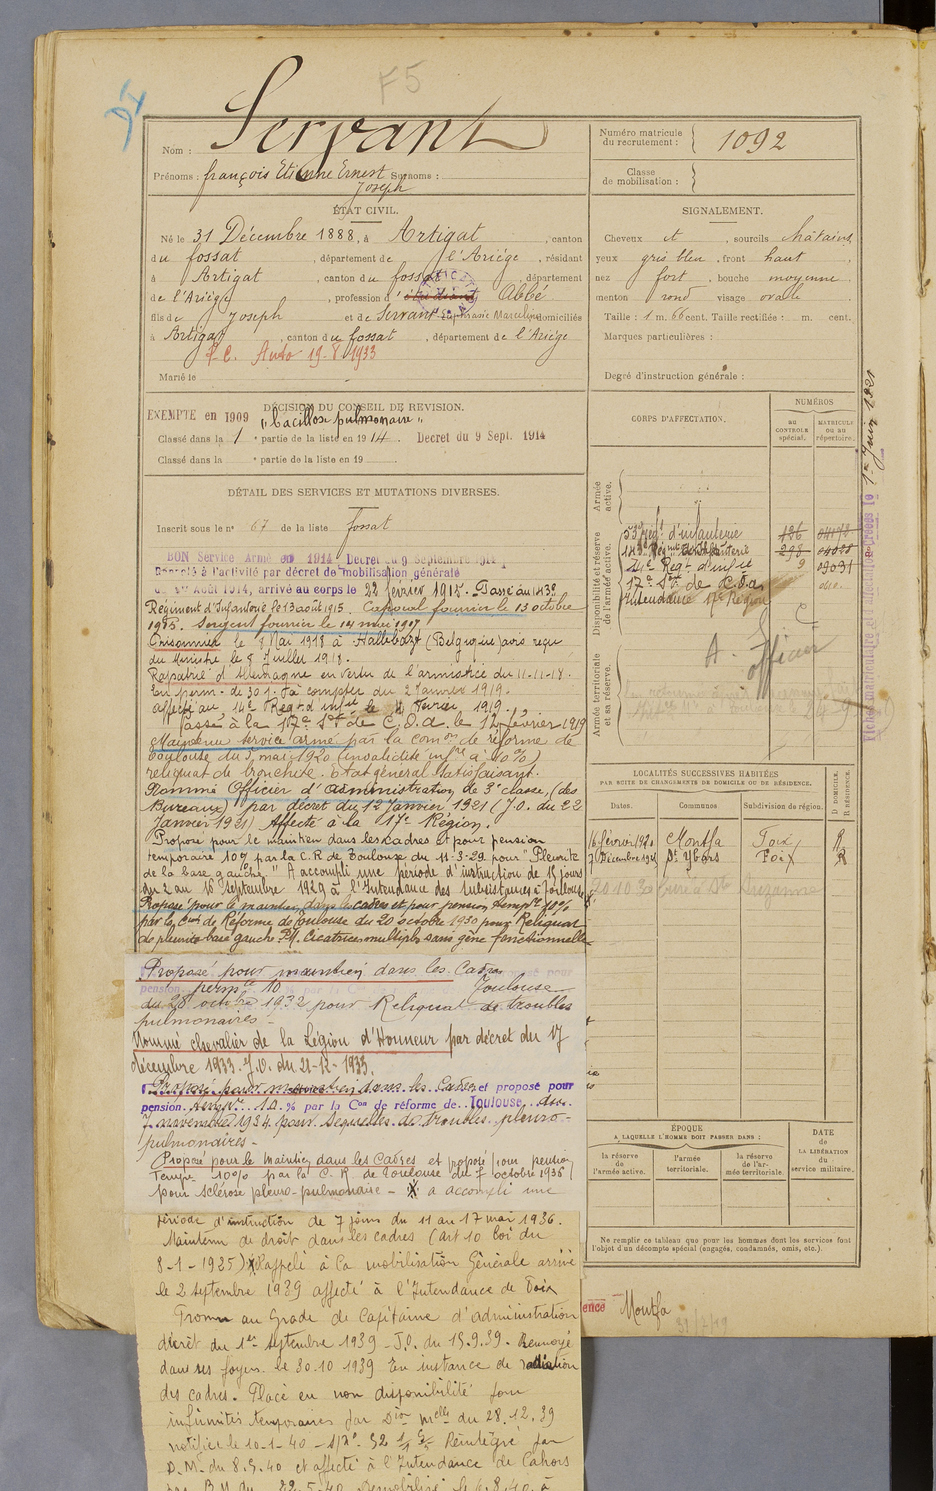 F5
Servant
Nom :
Prénoms : François Etienne Ernest Surnoms :
Joseph
Numéro matricule
du recrutement : 1092
Classe
de mobilisation :
ÉTAT CIVIL.
Né le 31 Décembre 1888, à Artigat, canton
du fossat, département de l'Ariège, résidant
à Artigat, canton du fossat, département
de l'Ariège, profession d'étudiant Abbé
fils de Joseph et de Servant Euphrasie Marceline domiciliés
à Artigat, canton du fossat, département de l'Ariège
P.C. Auto 19-8-1933
Marié le
SIGNALEMENT.
Cheveux et sourcils châtains,
yeux gris bleu, front haut
nez fort, bouche moyenne
menton rond visage ovale
Taille : 1 m. 66 cent. Taille rectifiée : m. cent.
Marques particulières :
Degré d'instruction générale :
DÉCISION DU CONSEIL DE REVISION.
EXEMPTE en 1909 "bacillose pulmonaire"
Classé dans la 1e partie de la liste en 1914. Decret du 9 Sept. 1914
Classé dans la e partie de la liste en 19
DÉTAIL DES SERVICES ET MUTATIONS DIVERSES.
Inscrit sous le n° 67 de la liste fossat
BON Service Armé en 1914 Decret du 9 Septembre 1914
Rappelé à l'activité par décret de mobilisation générale
du 1er Août 1914, arrivé au corps le 22 février 1915. Passé au 143e
Régiment d'Infanterie le 13 août 1915. Caporal fourrier le 13 octobre
1916. Sergent fourrier le 14 mai 1917
Prisonnier le 8 Mai 1918 à Hallebast (Belgique) avis reçu
du Ministre le 8 Juillet 1918.
Rapatrié d'Allemagne en vertu de l'armistice du 11-11-18.
En perm. de 30 j. à compter du 2 Janvier 1919.
affecté au 14e Regt d'infie le 4 Février 1919.
Passé à la 17e Son de C.O.A. le 12 février 1919
Maintenu service armé par la comon de réforme de
Toulouse du 5 mai 1920 (invalidité infre à 10%)
reliquat de bronchite. Etat général satisfaisant.
Nommé Officier d'administration de 3e classe, (des
Bureaux) par décret du 12 Janvier 1921 (J.O. du 22
Janvier 1921) Affecté à la 17e Région.
Proposé pour le maintien dans les cadres et pour pension
temporaire 10% par la C.R de Toulouse du 11-3-29 pour "Pleurite
de la base gauche" A accompli une période d'instruction de 15 jours
du 2 au 16 septembre 1929 à l'Intendance des subsistances à Toulouse
Proposé pour le maintien dans les cadres et pour pension tempre 10%
par la Con de Réforme de Toulouse du 20 octobre 1930 pour Reliquat
de pleurite base gauche. P.M. Cicatrices multiples sans gêne fonctionnelle
Proposé pour maintien dans les Cadres
pension permte 10 Toulouse
du 28 octobre 1932 pour Reliquat de troubles
pulmonaires
Nommé chevalier de la Légion d'Honneur par décret du 17
décembre 1933. J.O. du 21-12-1933.
Proposé pour maintien dans les Cadres et proposé pour
pension tempre 10 % par la Con de réforme de Toulouse du
7 novembre 1934 pour sequelles de troubles pleuro-
pulmonaires -
Proposé pour le maintien dans les Cadres et proposé pour pension
tempe 10% par la C.R. de Toulouse du 7 octobre 1936
pour sclérose pleuro-pulmonaire - X a accompli une
période d'instruction de 7 jours du 11 au 17 mai 1936.
Maintenu de droit dans les cadres (art 10 loi du
8-1-1925) X Rappelé à la mobilisation Générale arrivé
le 2 septembre 1939 affecté à l'Intendance de Foix
Promu au Grade de Capitaine d'administration
décret du 1er septembre 1939 - J.O. du 15.9.39. Renvoyé
dans ses foyers le 30.10 1939 En instance de radiation
des cadres. Placé en non disponibilité pour
infirmités temporaires par Dion melle du 28.12.39
notifiée le 10-1-40 Réintégré par
D.M. du 8.5.40 et affecté à l'Intendance de Cahors
par D.M. du 22-5-40 Demobilisé le 6.8.40 à
CORPS D'AFFECTATION.
NUMÉROS
au
contrôle
spécial.
matricule
ou au
répertoire.
Armée
active.
Disponibilité et réserve
de l'armée active.
Armée territoriale
et sa réserve.
53e Régt d'infanterie 186
143e Régiment d'Infanterie 298
14e Regt d'infie 9 09031
17e Son de C.O.A.
Intendance 17e Région
A. officier
1er Juin 1921
LOCALITÉS SUCCESSIVES HABITÉES
PAR SUITE DE CHANGEMENTS DE DOMICILE OU DE RÉSIDENCE.
Dates. Communes Subdivision de région.
D. DOMICILE.
R. RÉSIDENCE.
16 février 1920 Montfa Foix R
Décembre 192 St Ybars Foix R
20 10 30 Curé à Ste Suzanne
ÉPOQUE
A LAQUELLE L'HOMME DOIT PASSER DANS :
la réserve
de
l'armée active.
l'armée
territoriale.
la réserve
de l'ar-
mée territoriale.
DATE
de
LA LIBÉRATION
du
service militaire.
Ne remplir ce tableau que pour les hommes dont les services font
l'objet d'un décompte spécial (engagés, condamnés, omis, etc.).
ence Montfa
31/7/19